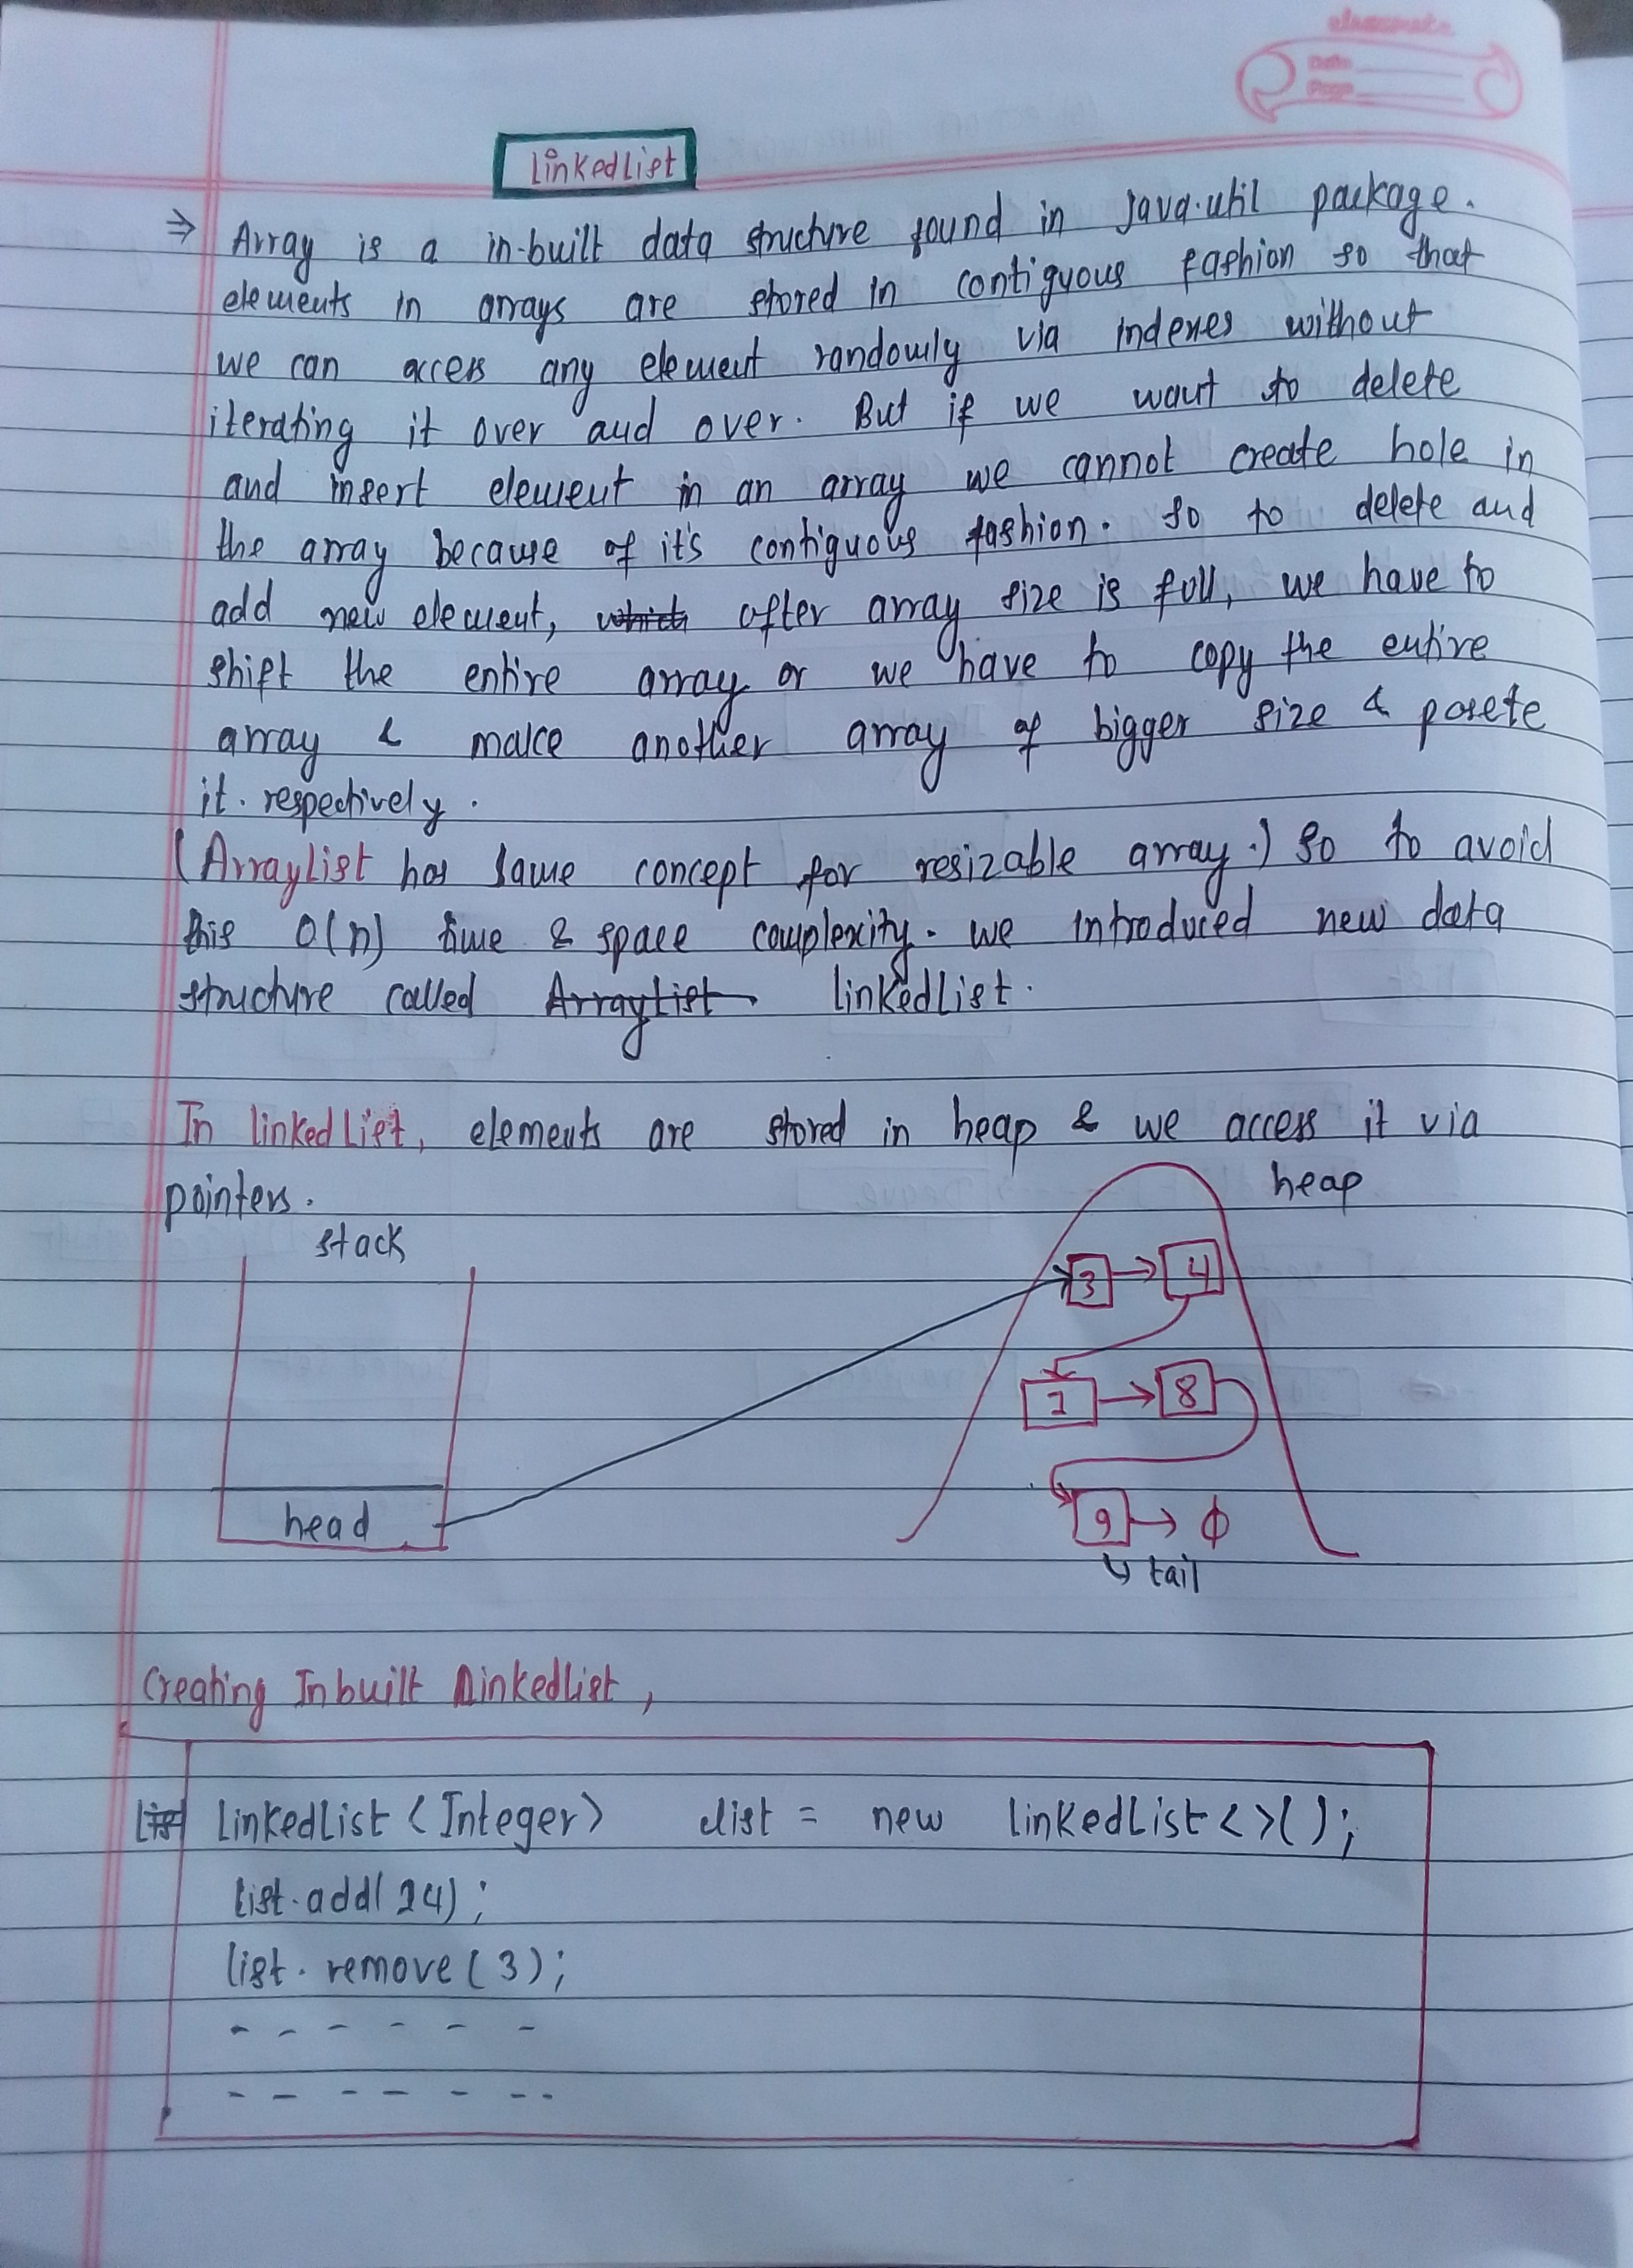 classmate
Date
Page
linkedlist
⇒ Array is a in-built data structure found in java.util package.
elements in arrays are stored in contiguous fashion so that
we can access any element randomly via indexes without
iterating it over and over. But if we want to delete
and insert element in an array we cannot create hole in
the array because of it's contiguous fashion. so to delete and
add new element, which after array size is full, we have to
shift the entire array or we have to copy the entire
array & make another array of bigger size & pasete
it. respectively.
(Arraylist has same concept for resizable array.) So to avoid
this O(n) time & space complexity. we introduced new data
structure called Arraylist linkedlist.
In linkedlist, elements are stored in heap & we access it via
pointers.
heap
stack
3 → 4
→ 8
head
9 → ϕ
↳ tail
Creating Inbuilt Linkedlist,
List linkedlist <Integer> list = new linkedlist <>();
list.add(24);
list.remove(3);
- - - - - -
- - - - - - -